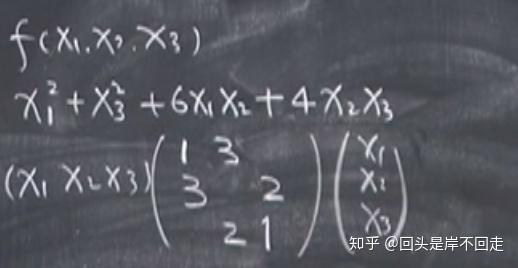 f(x₁.x₂.x₃)
x₁²+x₃²+6x₁x₂+4x₂x₃
(x₁ x₂ x₃)(1 3
3 2
2 1)(x₁
x₂
x₃)
知乎 @回头是岸不回走